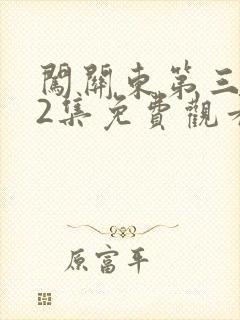 闖關東第三
2集免費觀看
原富平